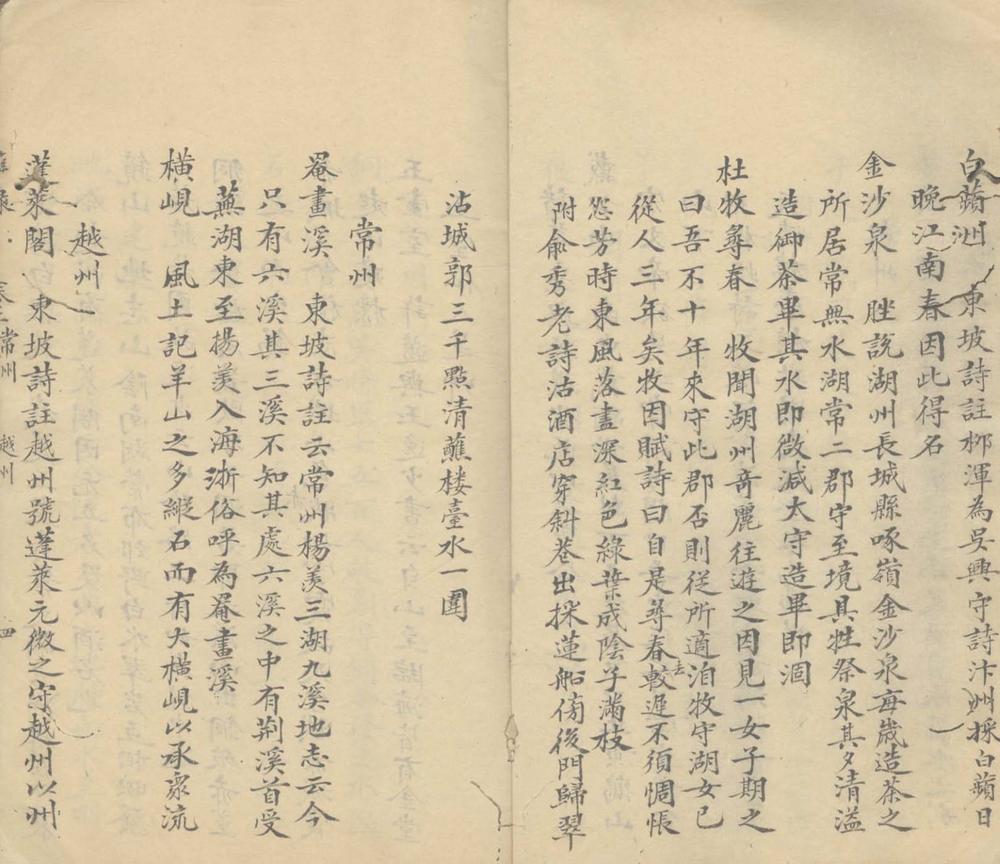 白蘋洲 東坡詩註柳渾為吳興守詩汴州採白蘋日
晚江南春因此得名
金沙泉 脞說湖州長城縣啄嶺金沙泉每歲造茶之
所居常無水湖常二郡守至境具牲祭泉其夕清溢
造御茶畢其水即微減大守造畢即涸
杜牧尋春 牧聞湖州奇麗往遊之因見一女子期之
曰吾不十年來守此郡否則從所適洎牧守湖女已
從人三年矣牧因賦詩曰自是尋春較遲不須惆悵
去
怨芳時東風落盡深紅色綠葉成陰子滿枝
附俞秀老詩沽酒店穿斜巷出採蓮船傍後門歸翠
沾城郭三千點清蘸楼臺水一圍
常州
罨畫溪 東坡詩註云常州楊羨三湖九溪地志云今
只有六溪其三溪不知其處六溪之中有荆溪首受
蕪湖東至揚羨入海浙俗呼為罨畫溪
橫峴 風土記羊山之多縱石而有大橫峴以承衆流
越州
蓬萊閣 東坡詩註越州號蓬萊元微之守越州以州
常州 越州 四